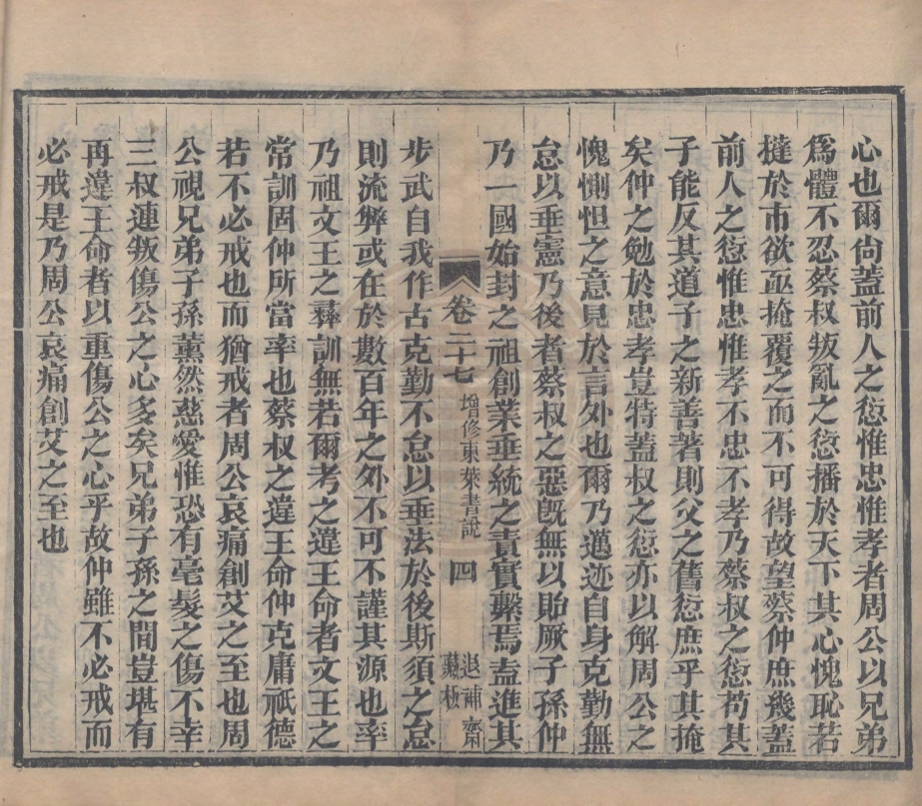 心也爾尚蓋前人之愆惟忠惟孝者周公以兄弟
爲體不忍蔡叔叛亂之愆播於天下其心愧恥若
撻於市欲亟掩覆之而不可得故望蔡仲庶幾蓋
前人之愆惟忠惟孝不忠不孝乃蔡叔之愆苟其
子能反其道子之新善著則父之舊愆庶乎其掩
矣仲之勉於忠孝豈特蓋叔之愆亦以解周公之
愧惻怛之意見於言外也爾乃邁迹自身克勤無
怠以垂憲乃後者蔡叔之惡旣無以貽厥子孫仲
乃一國始封之祖創業垂統之責實繫焉盍進其
卷二十七 增修東萊書說 四 退補齋藏板
步武自我作古克勤不怠以垂法於後斯須之怠
則流弊或在於數百年之外不可不謹其源也率
乃祖文王之彝訓無若爾考之違王命者文王之
常訓固仲所當率也蔡叔之違王命仲克庸祇德
若不必戒也而猶戒者周公哀痛創艾之至也周
公視兄弟子孫薰然慈愛惟恐有毫髮之傷不幸
三叔連叛傷公之心多矣兄弟子孫之間豈堪有
再違王命者以重傷公之心乎故仲雖不必戒而
必戒是乃周公哀痛創艾之至也